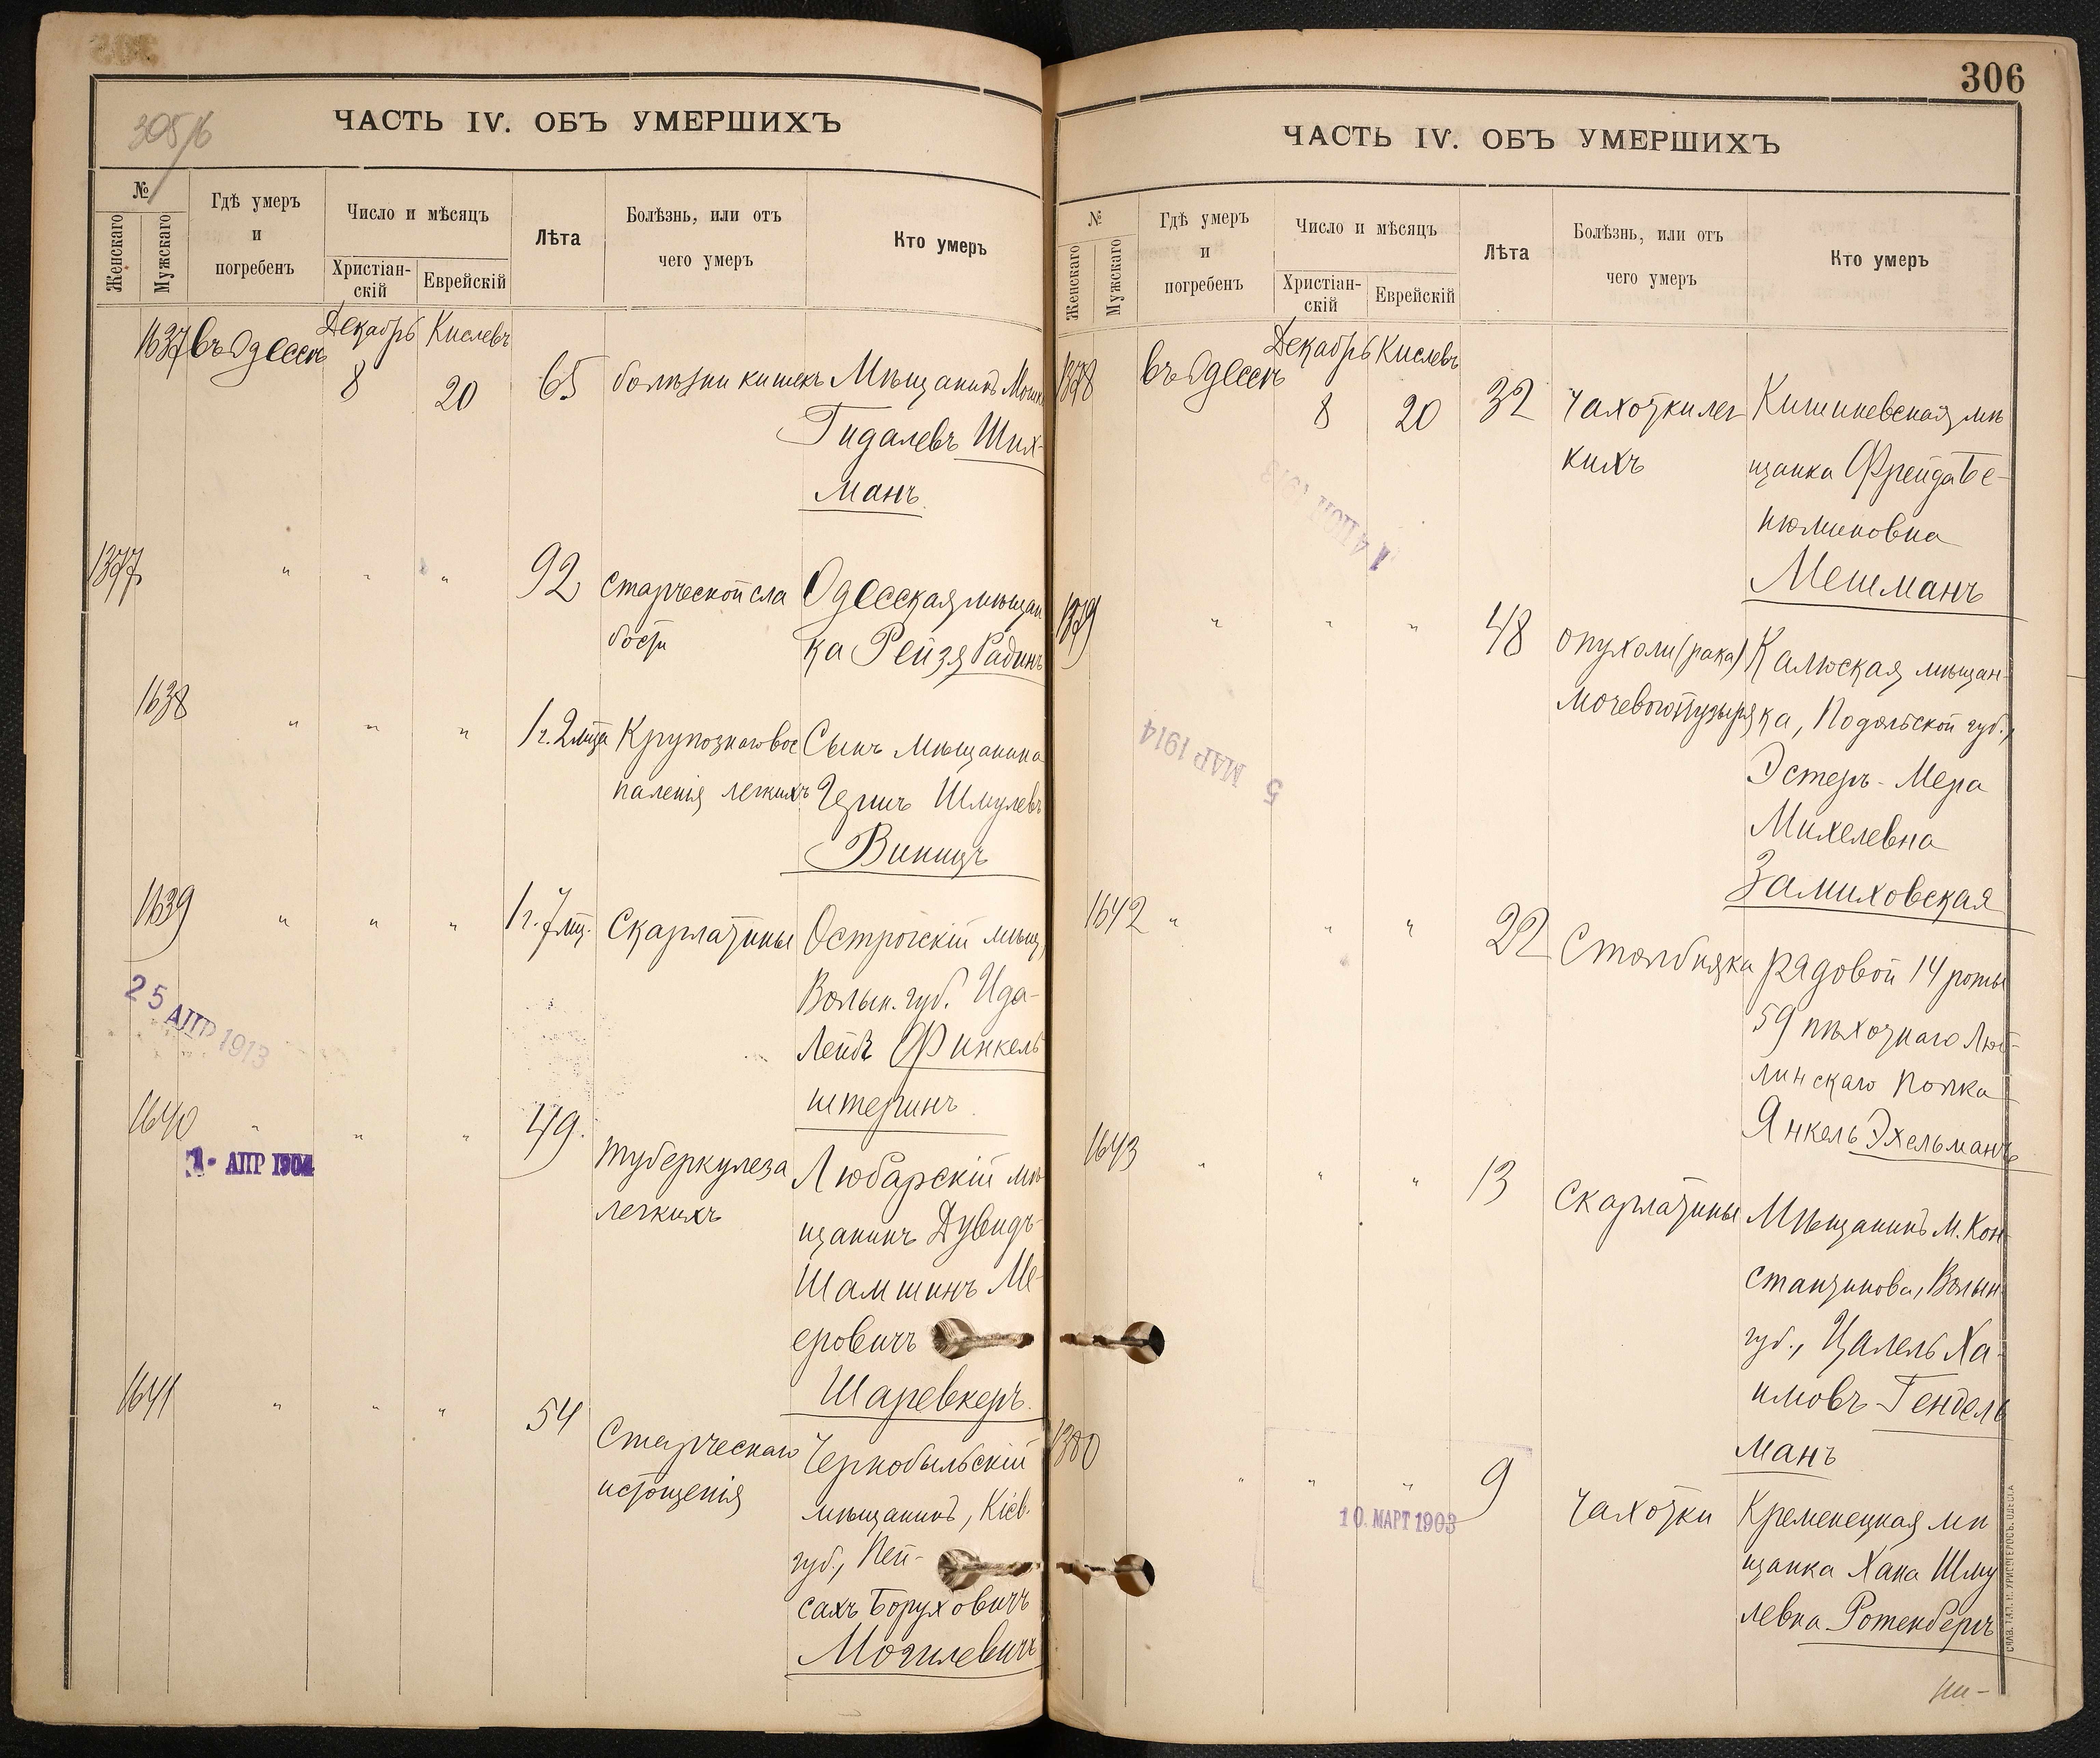 305/б
ЧАСТЬ IV. ОБЪ УМЕРШИХЪ
№
Женскаго
Мужскаго
Гдѣ умеръ
и
погребенъ
Число и мѣсяцъ
Христіан-
скій
Еврейскій
Лѣта
Болѣзнь, или отъ
чего умеръ
Кто умеръ
1637 въ Одессѣ Декабрь 8 Кислевъ 20 65 болѣзни кишекъ Мѣщанинъ
Гидалевъ Ших-
манъ.
1377 " " " 92 старческой сла Одесская мѣщан
бости ка Рейзя Радинъ
1638 " " " 1 г. 2 мца Крупознаго вос Сынъ мѣщанина
паленія легкихъ Герша Шмулевъ
Виницъ
1639 " " " 1 г. 7 мц. Скарлатины Острогскій мѣщ,
Волын. губ. Ида-
Лейбъ Финкель
штейнъ
25 АПР 1913
1640 " " " 49. туберкулеза Любарскій мѣ
легкихъ щанинъ Дувидъ-
1- АПР 1904
Шамшинъ Ме-
еровичъ
Шаревкеръ.
1641 " " " 54 Старческаго Чернобыльскій
истощенія мѣщанинъ, Кіев.
губ., Пей-
сахъ Боруховичъ
Могилевичъ
306
ЧАСТЬ IV. ОБЪ УМЕРШИХЪ
№
Женскаго
Мужскаго
Гдѣ умеръ
и
погребенъ
Число и мѣсяцъ
Христіан-
скій
Еврейскій
Лѣта
Болѣзнь, или отъ
чего умеръ
Кто умеръ
1378 въ Одессѣ Декабрь 8 Кислевъ 20 32 чахотки лег Кишиневская мѣ
кихъ щанка Фрейда Бе-
нюминовна
Мешманъ
1379 " " " 48 опухоли (рака) Калюская мѣщан-
мочевого пузыря ка, Подольской губ.,
Эстеръ-Мера
Михелевна
Замиховская
5 МАР 1914
1642 " " " 22 Столбняка рядовой 14 роты
59 пѣхотнаго Люб-
линскаго полка
Янкель Эхельманъ
1643 " " " 13 скарлатины Мѣщанинъ м. Кон
стантинова, Волын
губ., Цалель Ха-
имовъ Гендель
манъ
1380 " " " 9 чахотки Кременецкая мѣ
щанка Хана Шму
левна Ротенбергъ
10 МАРТ 1903